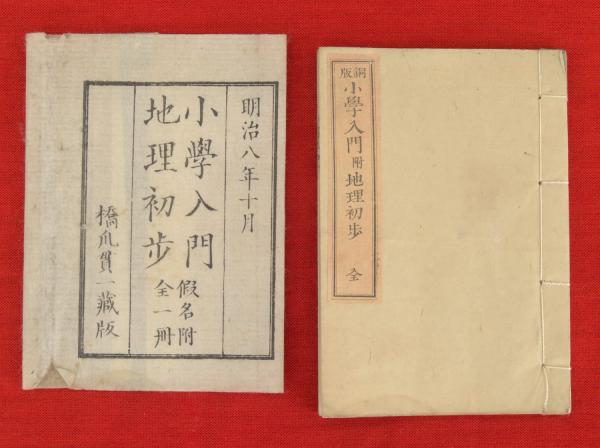 明治八年十月
小學入門 假名附
地理初步 全一冊
橋爪貫一藏版
銅版
小學入門 附 地理初步 全